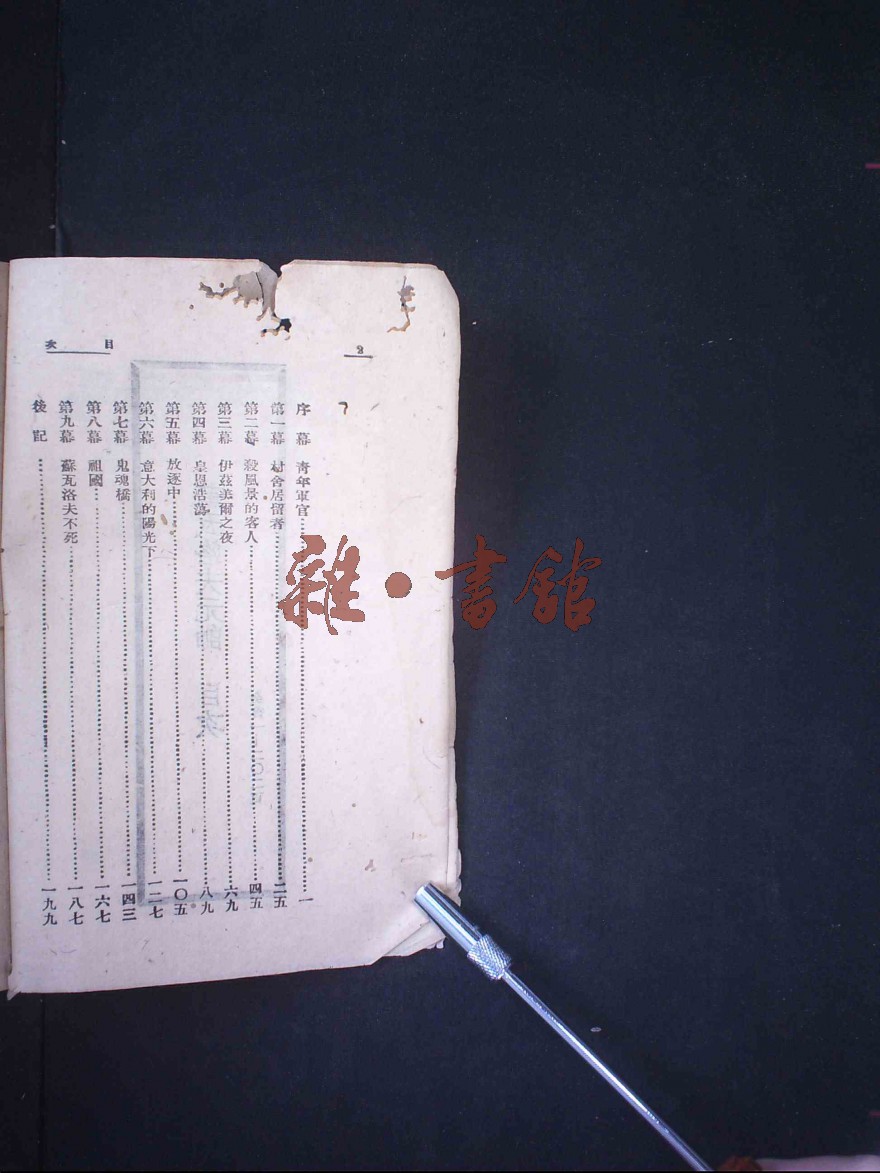 目次
2
序幕 青年軍官……一
第一幕 村舍居留者……二五
第二幕 殺風景的客人……四五
第三幕 伊茲美爾之夜……六九
第四幕 皇恩浩蕩……八九
第五幕 放逐中……一〇五
第六幕 意大利的陽光下……一二七
第七幕 鬼魂橋……一四三
第八幕 祖國……一六七
第九幕 蘇瓦洛夫不死……一八七
後記……一九九
雜•書館